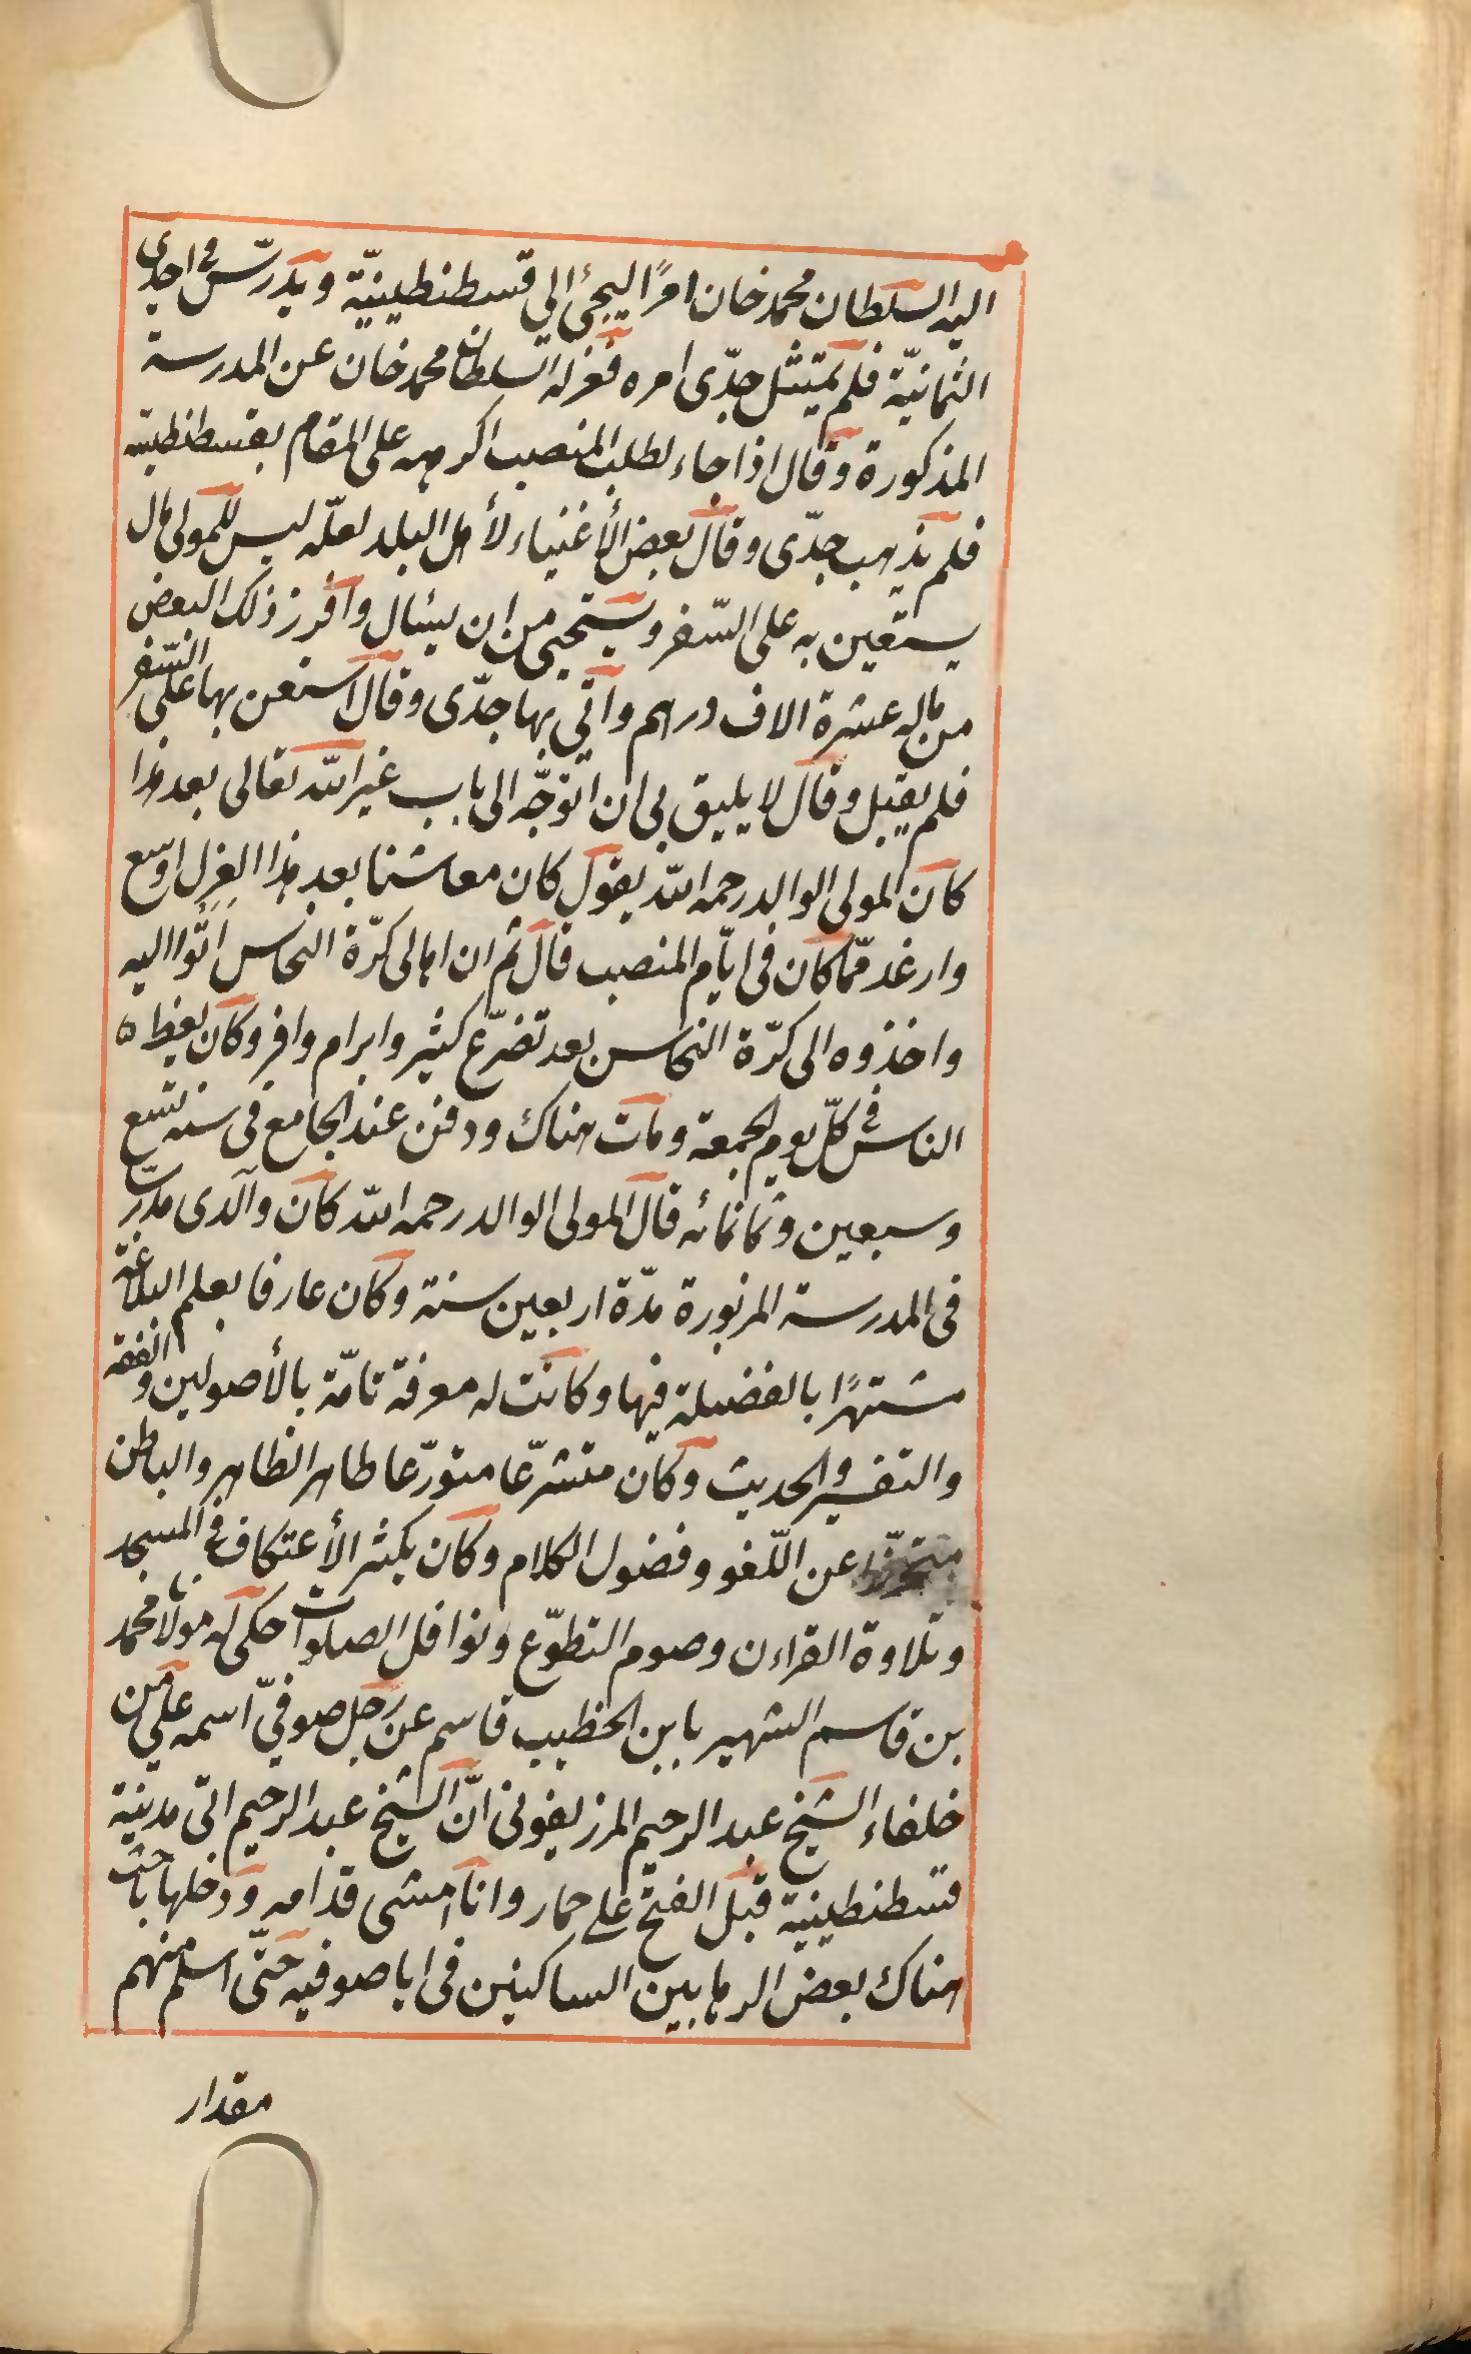 اليه السلطان محمد خان امرًا ليجئ الي قسطنطينيّة ويدرّس في احدى
الثمانيّة فلم يمتثل جدّى امره فعزله السلطان محمد خان عن المدرسة
المذكورة وقال اذا جاء لطلب المنصب اكرهه على المقام بقسطنطينية
فلم يذهب جدّى وقال بعض الأغنياء لأهل البلد لعلّه ليس للمولى مال
يستعين به على السّفر ويستحيى من ان يسئال وافرز ذلك البعض
من ماله عشرة الاف دراهم واتي بها جدّى وقال استعن بها على السّفر
فلم يقبل وقال لا يليق بي ان اتوجّه الى باب غير الله تعالى بعد هذا
كان المولى الوالد رحمه الله يقول كان معاشنا بعد هذا العزل اوسع
وارغد ممّا كان فى ايّام المنصب قال ثم ان اهالى كرّة النحاس اتوا اليه
واخذوه الى كرّة النحاس بعد تضرّع كثير وابرام وافر وكان يعظ ه
الناس فى كلّ يوم الجمعة ومات هناك ودفن عند الجامع فى سنه تسع
وسبعين وثمانمائه قال المولى الوالد رحمه الله كان والدى مدرّسا
فى المدرسة المزبورة مدّة اربعين سنة وكان عارفا بعلم البلاغة
مشتهرًا بالفضيلة فيها وكانت له معرفة تامّة بالأصولين والفقه
والتفسير والحديث وكان متشرّعا متورّعا طاهر الظاهر والباطن
متحرّزا عن اللّغو وفضول الكلام وكان يكثر الأعتكاف فى المسجد
وتلاوة القراءن وصوم التطوّع ونوافل الصلوات حكى له مولانا محمد
بن قاسم الشهير بابن الخطيب قاسم عن رجل صوفيّ اسمه علي من
خلفاء الشيخ عبد الرحيم المرزيفونى انّ الشيخ عبد الرحيم اتى مدينة
قسطنطينية قبل الفتح على حمار وانا امشى قدّامه ودخلها باحث
هناك بعض الرهابين الساكنين فى ايا صوفيه حتّى اسلم منهم
مقدار